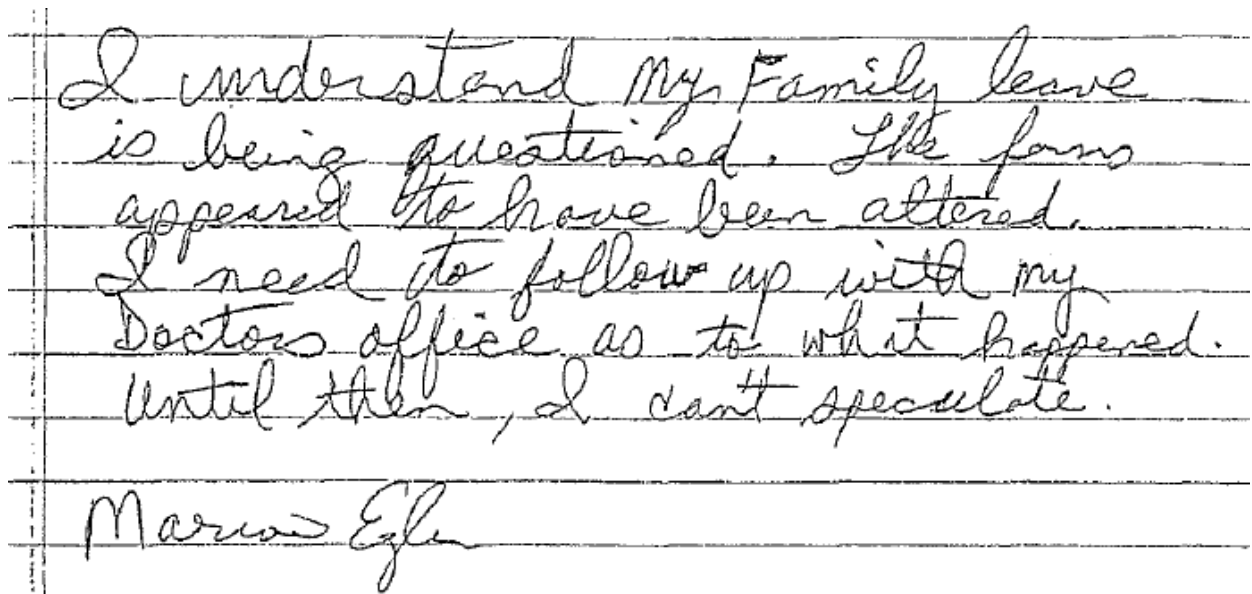 I understand my Family leave
is being questioned. The forms
appeared to have been altered.
I need to follow up with my
Doctors office as to what happened.
Until then, I can't speculate.